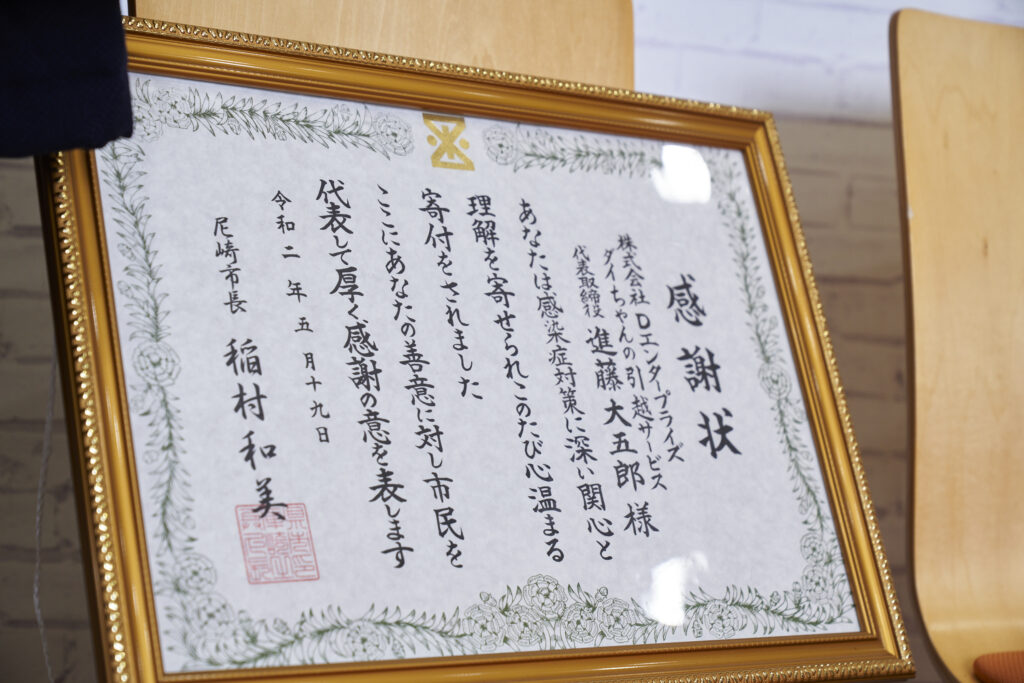 感謝状
株式会社Dエンタープライズ
ダイちゃんの引越サービス
代表取締役 進藤大五郎様
あなたは感染症対策に深い関心と
理解を寄せられこのたび心温まる
寄付をされました
ここにあなたの善意に対し市民を
代表して厚く感謝の意を表します
令和二年五月十九日
尼崎市長 稲村和美